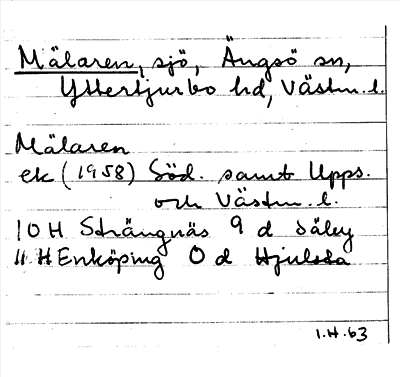 Mälaren, sjö, Ängsö sn,
Yttertjurbo hd, Västm. l.
Mälaren
ek (1958) Söd. samt Upps.
och Västm. l.
10 H Strängnäs 9 d Säby
11 H Enköping 0 d Hjulsta
1.H.63